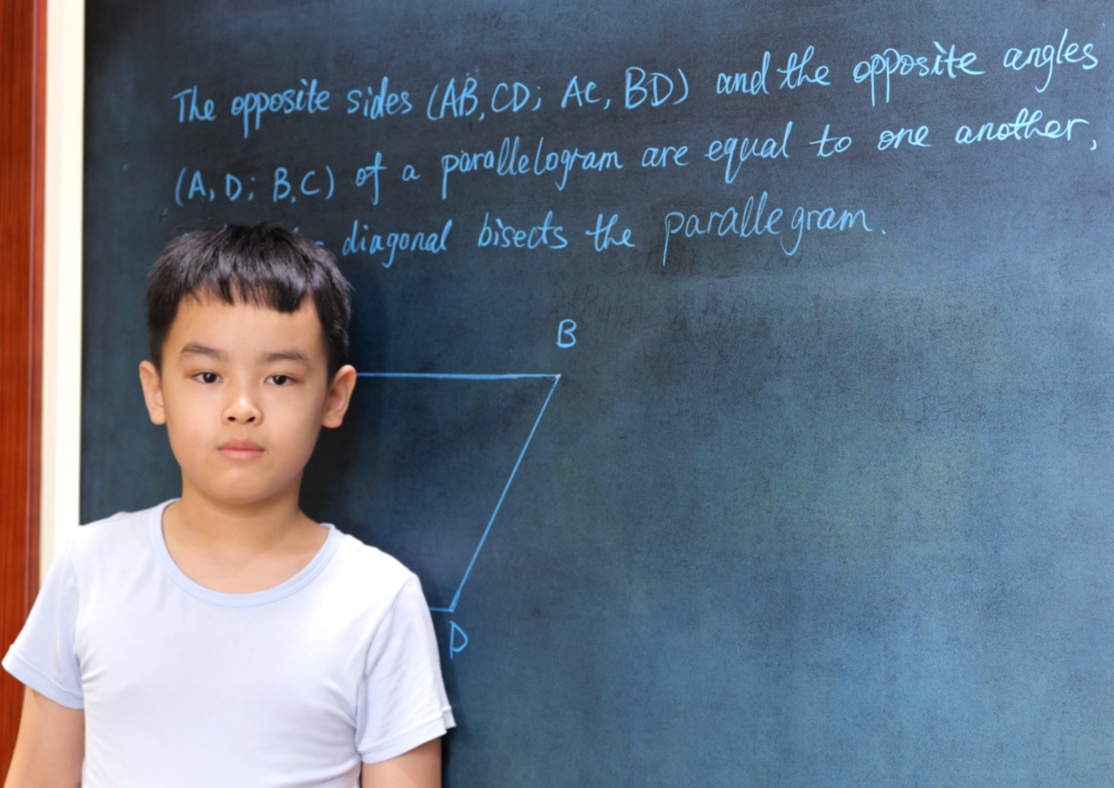 The opposite sides (AB, CD; AC, BD) and the opposite angles
(A, D; B, C) of a parallelogram are equal to one another,
diagonal bisects the parallegram.
B
D